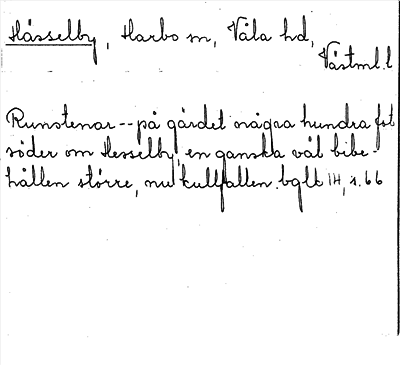 Hässelby, Harbo sn, Våla hd,
Västml.l
Runstenar -- på gärdet några hundra fot
söder om Hesselby, en ganska väl bibe-
hållen större, nu kullfallen.